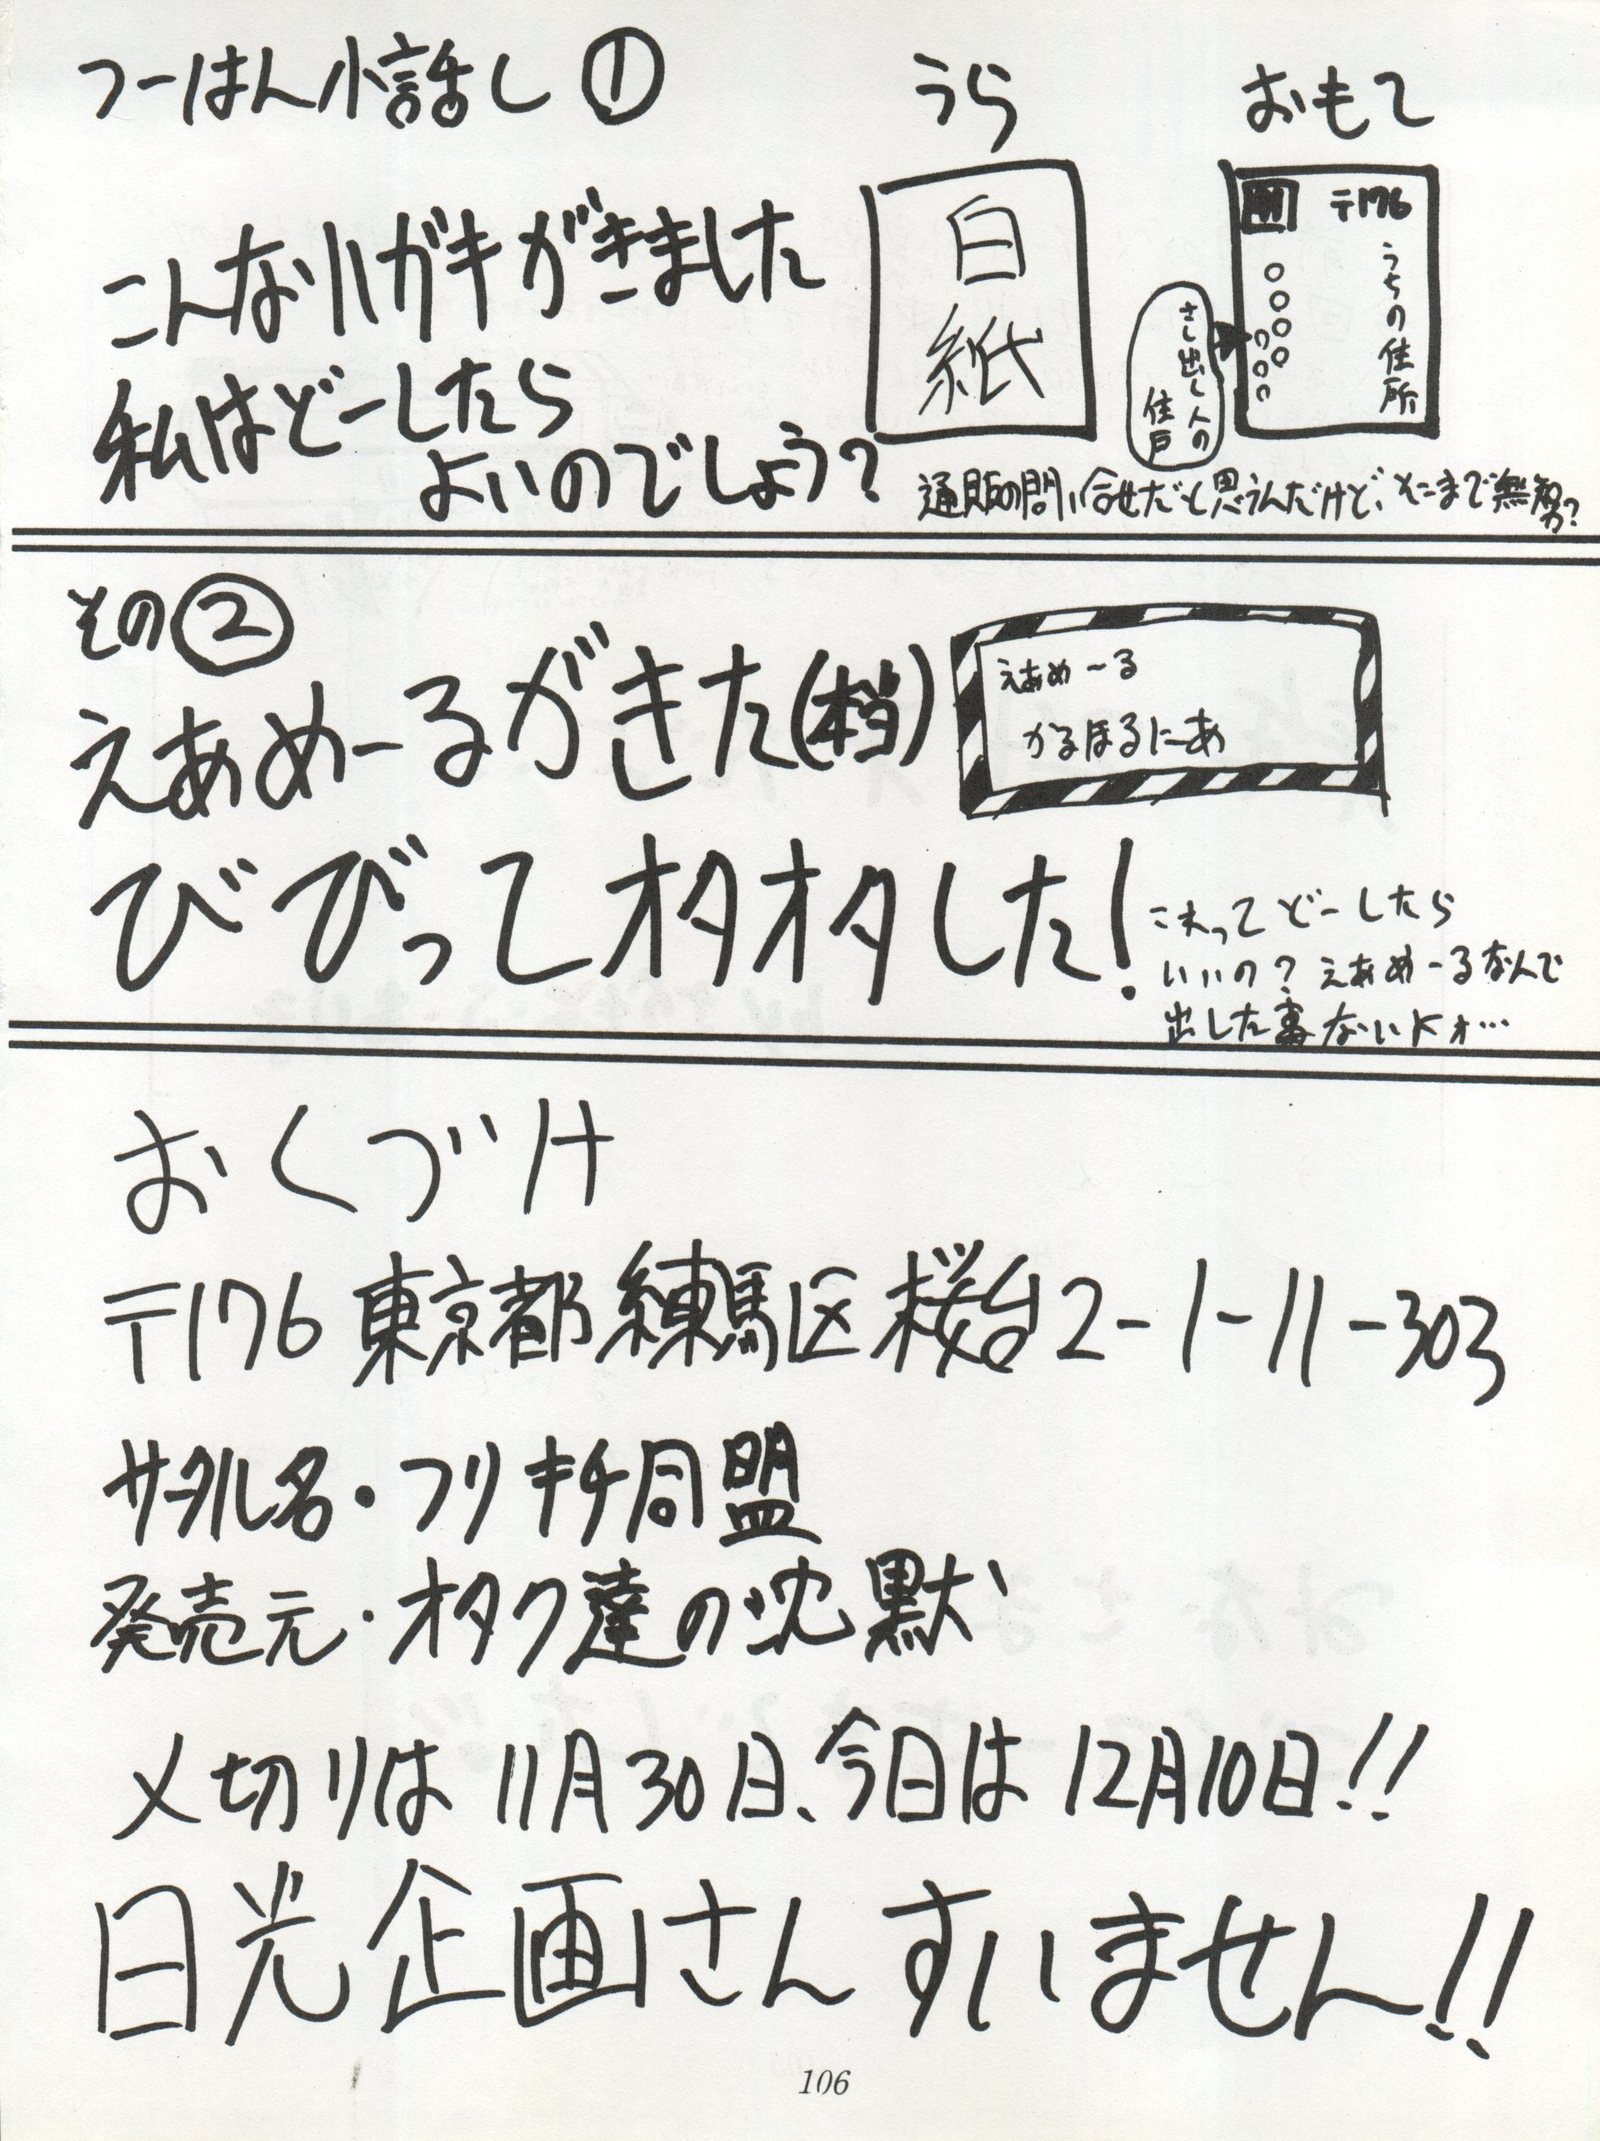 つーはん小話し①
こんなハガキがきました
私はどーしたら
よいのでしょう?
うら
白紙
おもて
〒176
うちの住所
さし出し人の
住戸
通販の問い合せだと思うんだけど、そこまで無知?
その②
えあめーるがきた(本当)
えあめーる
かるほるにーあ
びびってオタオタした!
これってどーしたら
いいの?えあめーるなんて
出した事ないにォ…
おくづけ
〒176 東京都練馬区桜台2-1-11-303
サークル名・フリキチ同盟
発売元・オタク達の沈黙
〆切りは11月30日、今日は12月10日!!
日光企画さんすいません!!
106